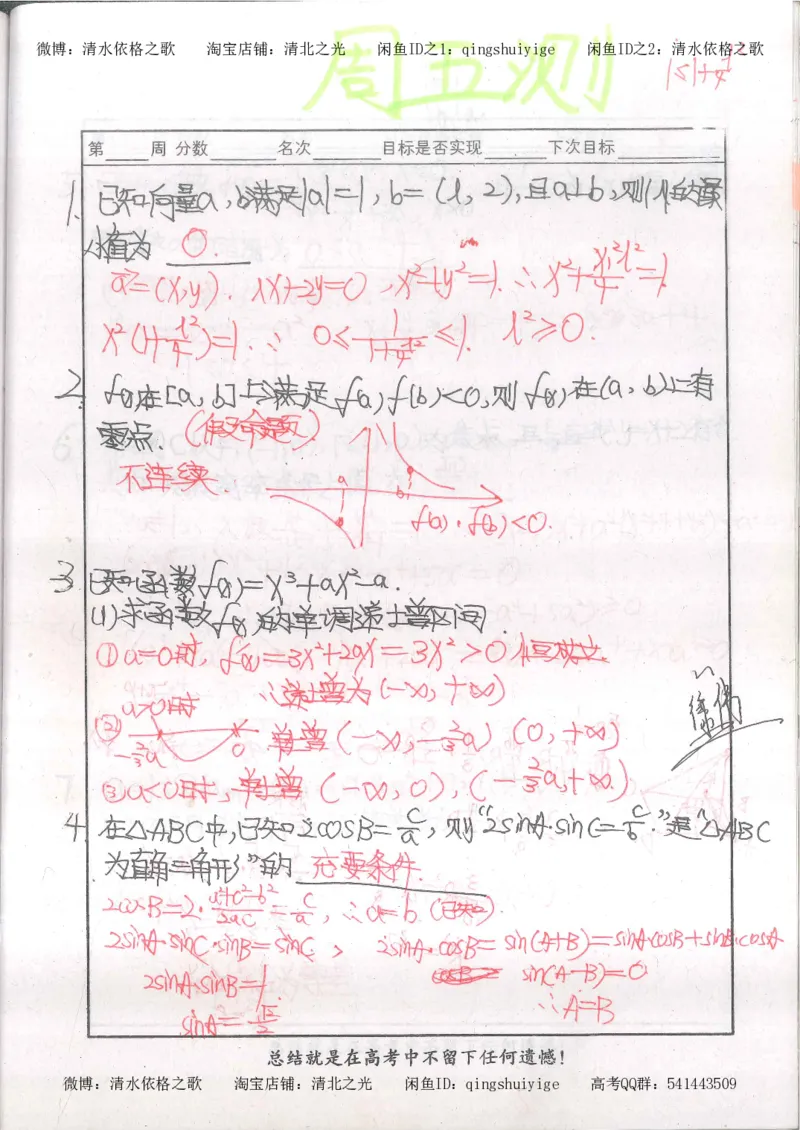 微博：清水依格之歌 淘宝店铺：清北之光 闲鱼ID之1：qingshuiyige 闲鱼ID之2：清水依格之歌
周五测
第 周 分数 名次 目标是否实现 下次目标
1. 已知向量a，b满足|a|=1，b=(λ，2)，且a⊥b，则|λ|的最
小值为 0.
a⃗=(x,y). λx+2y=0，x²+y²=1. ∴x²+x²λ²/4=1.
x²(1+λ²/4)=1. ∴ 0≤1/(1+λ²/4)≤1. λ²≥0.
2. f(x)在[a，b]上满足f(a)f(b)<0，则f(x)在(a，b)上有
零点. (假命题).
不连续
a b
f(a)·f(b)<0.
3. 已知函数f(x)=x³+ax²-a.
(1)求函数f(x)的单调递增区间.
①a=0时，f'(x)=3x²+2ax=3x²>0恒成立.
∴递增为(-∞，+∞)
a>0时
② -2/3a 0 单增(-∞，-2/3a) (0，+∞)
③a<0时，单增(-∞，0)，(-2/3a，+∞.)
4. 在△ABC中，已知2cosB=c/a，则“2sinA·sinC=c/b.”是“△ABC
为直角三角形”的 充要条件.
2cosB=2·(a²+c²-b²)/2ac=c/a，∴a=b.(已知).
2sinA·sinC·sinB=sinC， 2sinA·cosB=sin(A+B)=sinA·cosB+sinB·cosA
2sinA·sinB=1. sin(A-B)=0
sinA=√2/2 ∴A=B
总结就是在高考中不留下任何遗憾！
微博：清水依格之歌 淘宝店铺：清北之光 闲鱼ID：qingshuiyige 高考QQ群：541443509